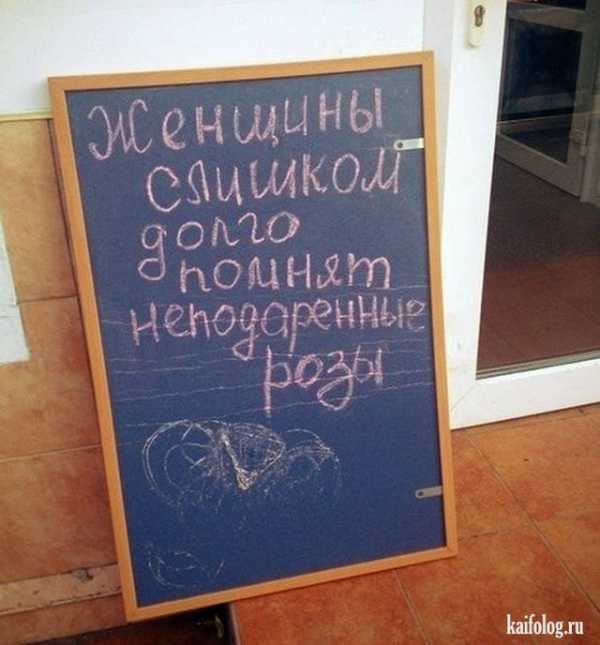 Женщины
слишком
долго
помнят
неподаренные
розы
kaifolog.ru